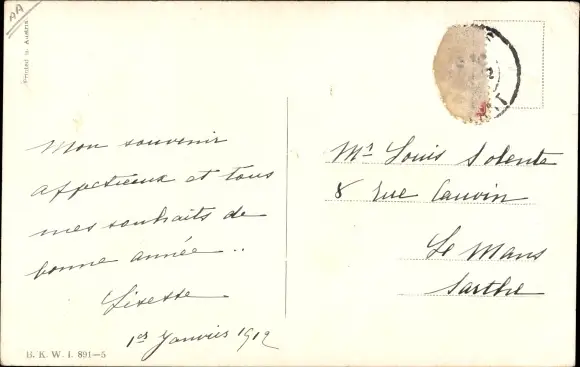 AA
Printed in Austria
Mon souvenir
affectueux et tous
mes souhaits de
bonne année ..
Lisette
1er Janvier 1912
B. K. W. I. 891-5
Mr Louis Solente
8 rue Cauvin
Le Mans
Sarthe